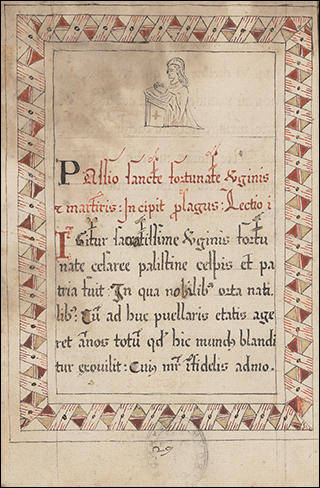 PAssio sancte fortunate v̄ginis
⁊ martiris: Incipit plagus: Lectio i
IGitur sacratissime v̄ginis fortu
nate cesaree palistine cespis et pa
tria fuit: In qua nobilibꝰ orta nati
libꝰ: Cū ad huc puellaris etatis age
ret ānos totū qd̄ hic mundi blandi
tur exvilit: Cuiꝰ mr̄ ifidelis admo.
29